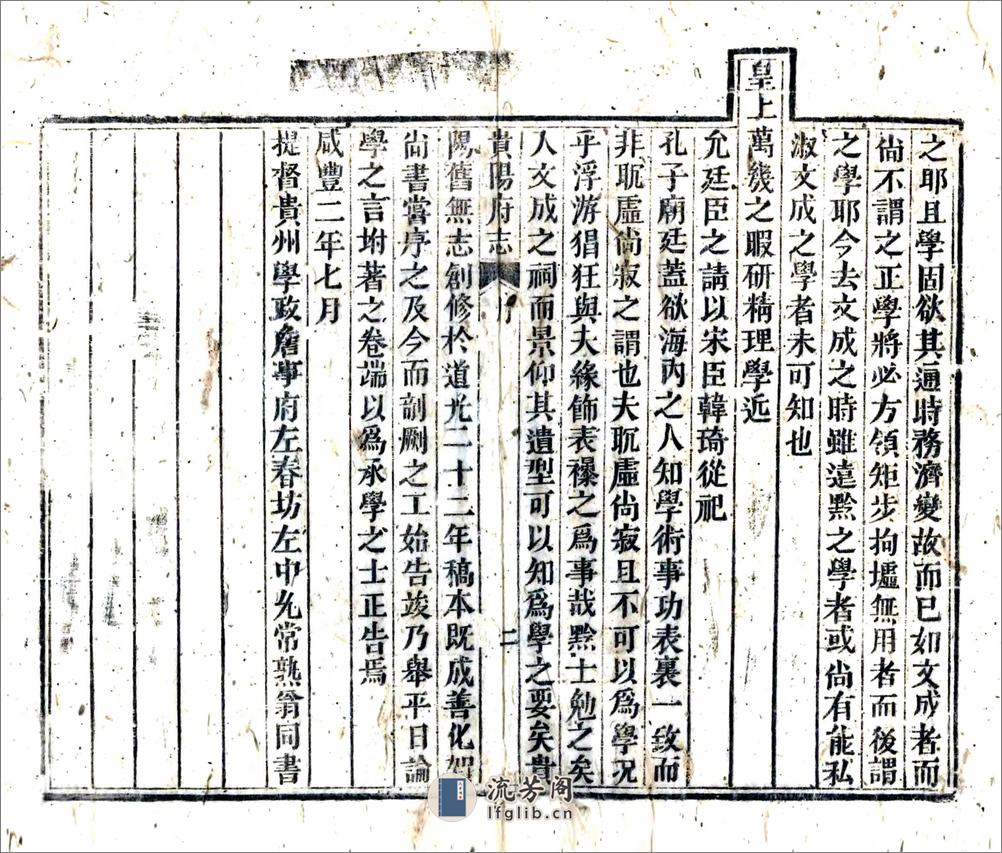 之耶且學固欲其通時務濟變故而已如文成者而
尙不謂之正學將必方領矩步拘墟無用者而後謂
之學耶今去文成之時雖遠黔之學者或尙有能私
淑文成之學者未可知也
皇上萬幾之暇硏精理學近
允廷臣之請以宋臣韓琦從祀
孔子廟廷蓋欲海內之人知學術事功表裏一致而
非耽虛尙寂之謂也夫耽虛尙寂且不可以爲學況
乎浮游猖狂與夫緣飾表襮之爲事哉黔士勉之矣
入文成之祠而景仰其遺型可以知爲學之要矣貴
貴陽府志 序 二
陽舊無志創修於道光二十二年稿本既成善化賀
尙書嘗序之及今而剞劂之工始告竣乃舉平日論
學之言坿著之卷端以爲承學之士正告焉
咸豐二年七月
提督貴州學政詹事府左春坊左中允常熟翁同書
流芳阁
lfglib.cn